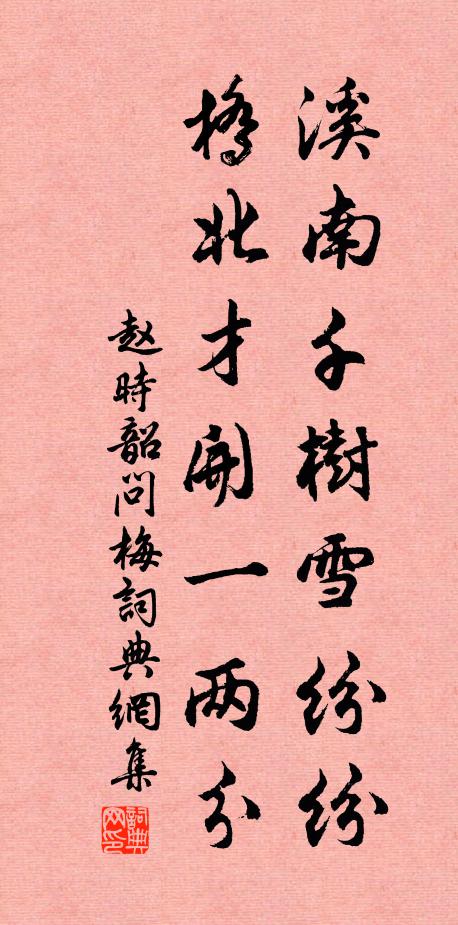 溪南千樹雪紛紛
橋北才開一两分
赵時韶问梅詞典網集
詞典网印